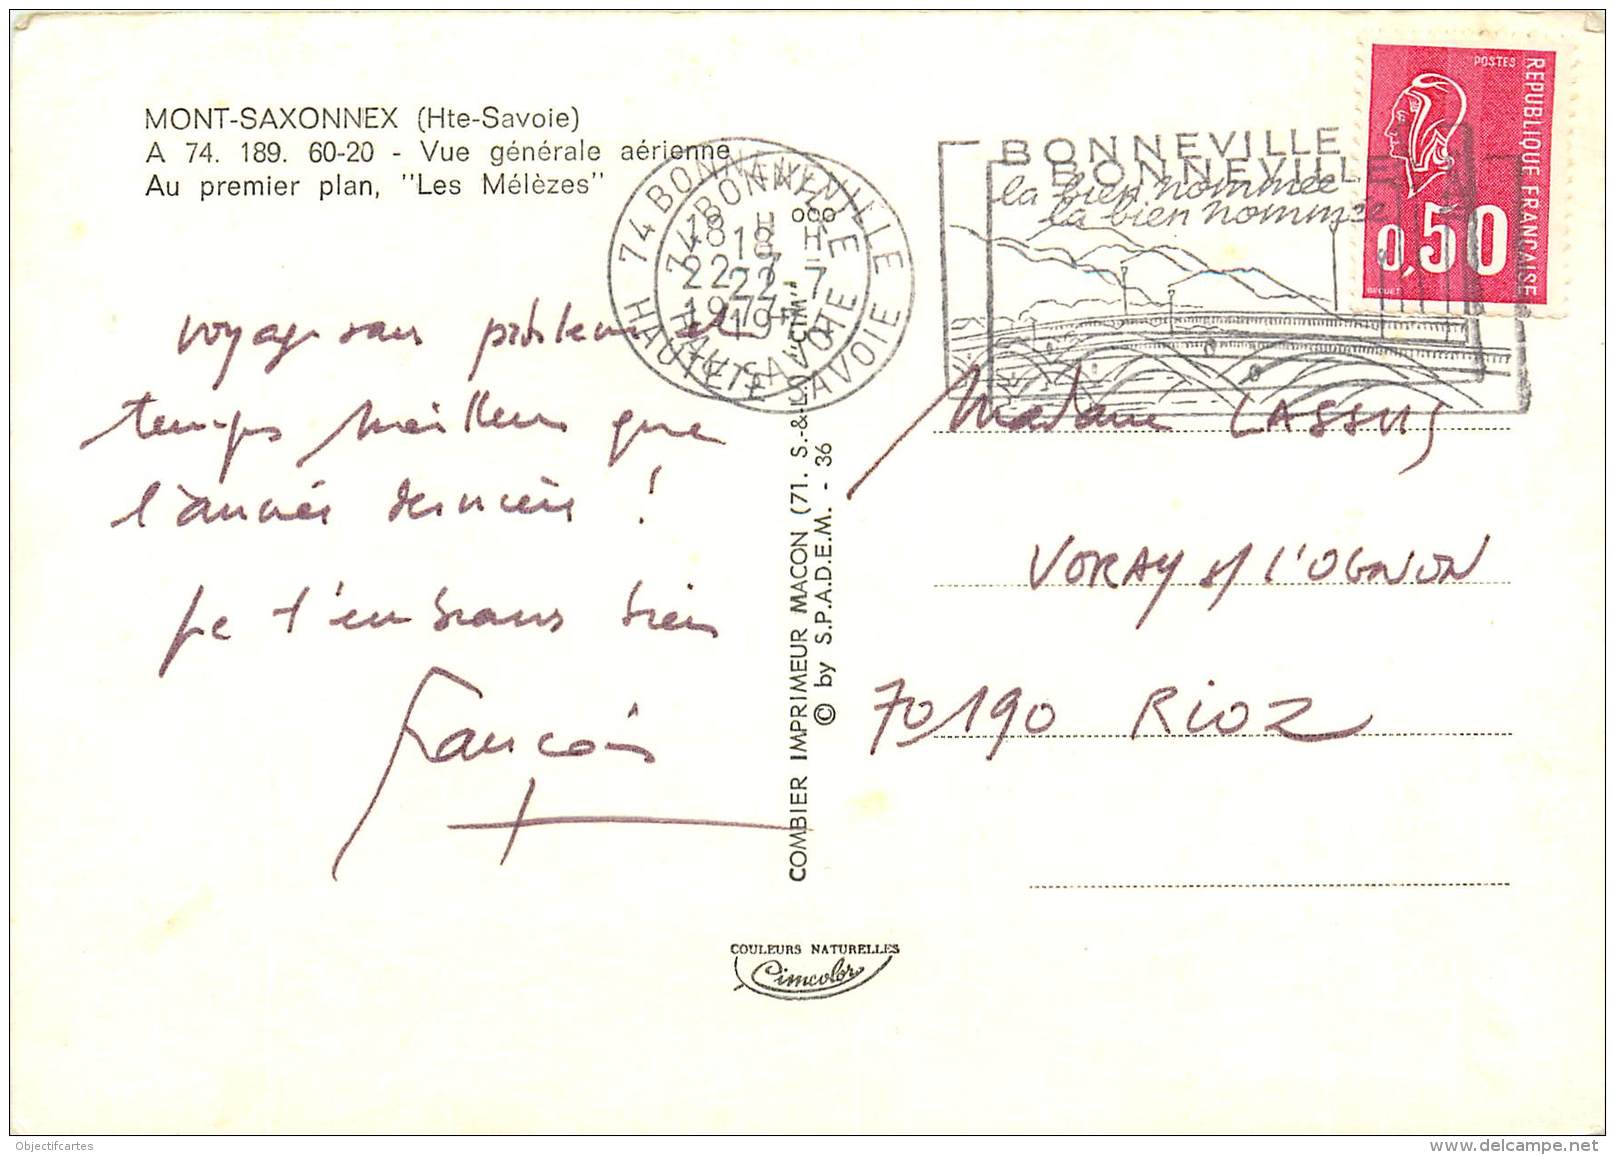 MONT-SAXONNEX (Hte-Savoie)
A 74. 189. 60-20 - Vue générale aérienne
Au premier plan, "Les Mélèzes"
voyage sans problème et
temps meilleur que
l'année dernière !
je t'embrasse bien
François
74 BONNEVILLE
18 H
22-7
1977
HAUTE SAVOIE
74 BONNEVILLE
18 H
22-7
19
HAUTE SAVOIE
BONNEVILLE
la bien nommée
BONNEVILLE
la bien nommée
POSTES
REPUBLIQUE FRANÇAISE
0,50
BEQUET
COMBIER IMPRIMEUR MACON (71. S.-&-L.) "CIM"
© by S.P.A.D.E.M. - 36
Madame LASSUS
VORAY s/ L'OGNON
70190 RIOZ
COULEURS NATURELLES
Cimcolor
Objectifcartes
www.delcampe.net